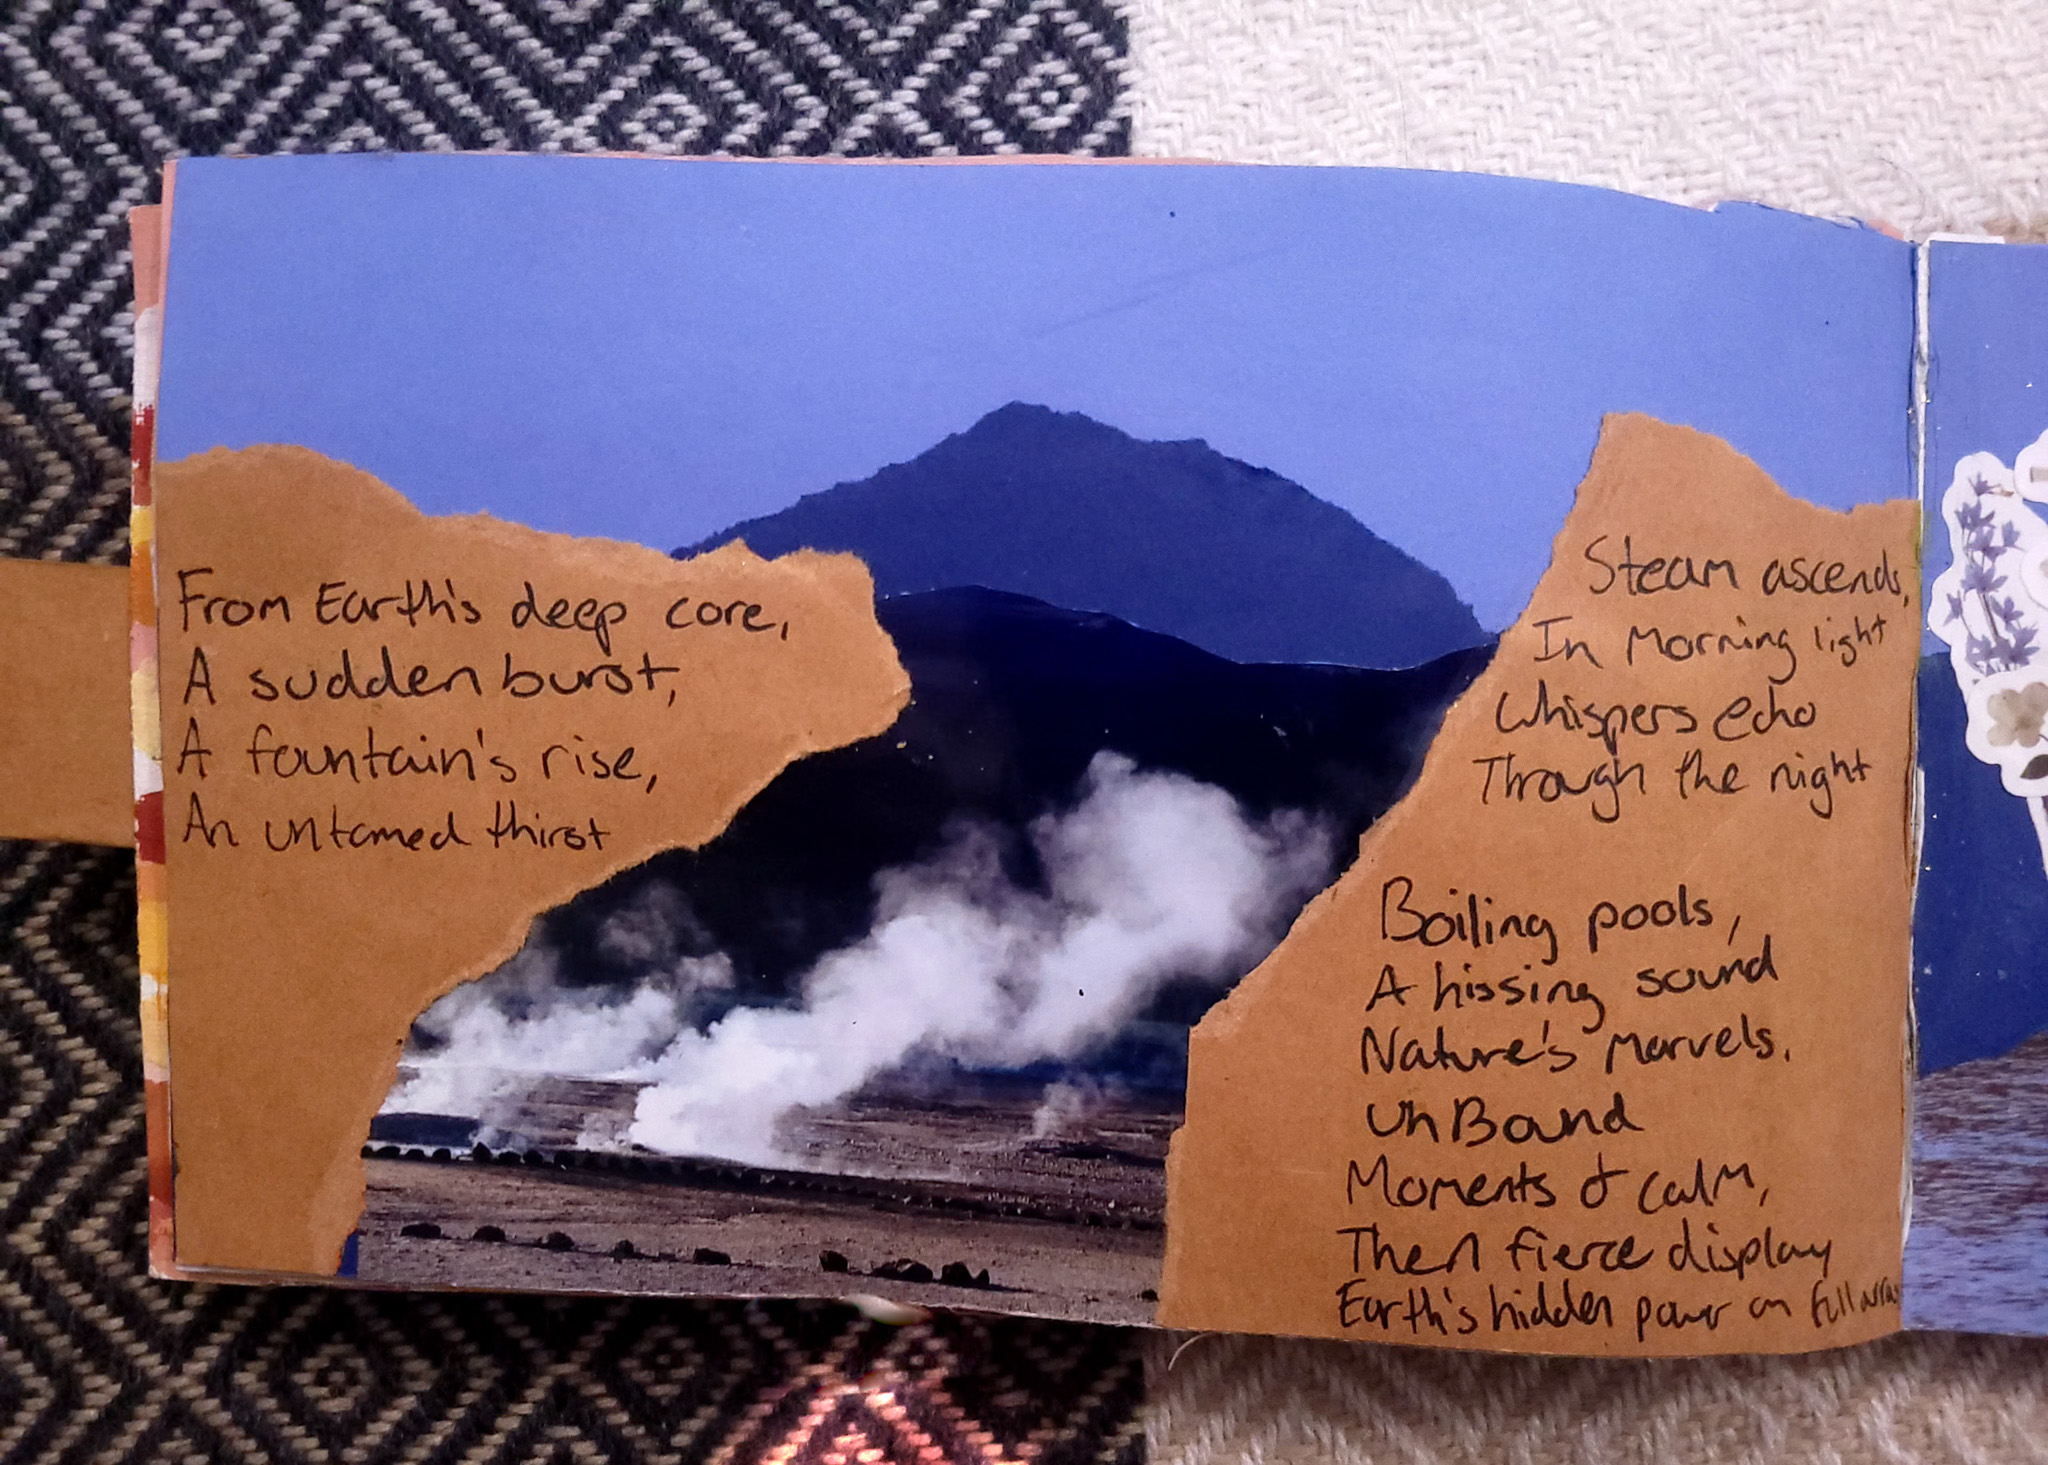 From Earth's deep core,
A sudden burst,
A fountain's rise,
An untamed thirst
Steam ascends,
In Morning light
Whispers echo
Through the night
Boiling pools,
A hissing sound
Nature's Marvels.
UnBound
Moments of calm,
Then fierce display
Earth's hidden power on full array